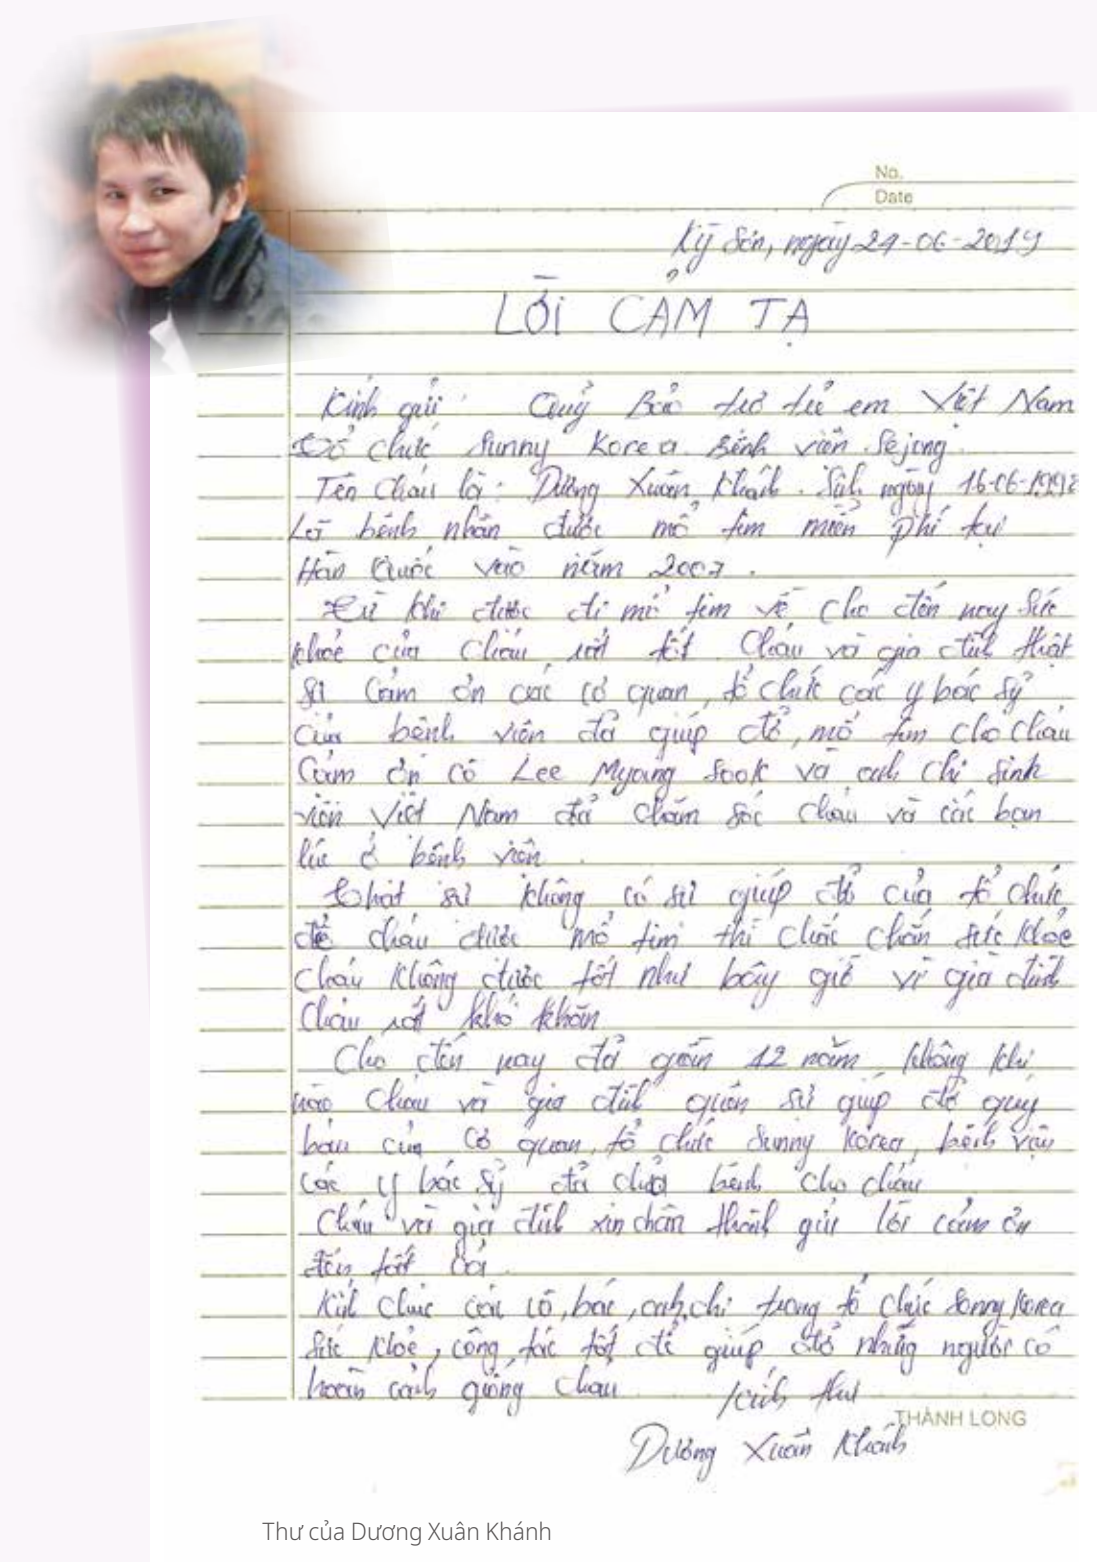 No.
Date
Kỳ Sơn, ngày 24-06-2019
LỜI CẢM TẠ
Kính gửi: Quỹ Bảo trợ trẻ em Việt Nam
Tổ chức Sunny Korea Bệnh viện Sejong.
Tên cháu là: Dương Xuân Khánh. Sinh ngày 16-06-1992
Là bệnh nhân được mổ tim miễn phí tại
Hàn Quốc vào năm 2007.
Từ khi được đi mổ tim về cho đến nay sức
khỏe của cháu rất tốt. Cháu và gia đình thật
sự cảm ơn các cơ quan, tổ chức các y bác sỹ
của bệnh viện đã giúp đỡ, mổ tim cho cháu
Cảm ơn cô Lee Myoung Sook và anh chị sinh
viên Việt Nam đã chăm sóc cháu và các bạn
lúc ở bệnh viện.
Thật sự không có sự giúp đỡ của tổ chức
để cháu được mổ tim thì chắc chắn sức khỏe
cháu không được tốt như bây giờ vì gia đình
cháu rất khó khăn
Cho đến nay đã gần 12 năm, không khi
nào cháu và gia đình quên sự giúp đỡ quý
báu của cơ quan, tổ chức Sunny Korea, bệnh viện
các y bác sỹ đã chữa bệnh cho cháu
Cháu và gia đình xin chân thành gửi lời cảm ơn
đến tất cả.
Kính chúc các cô, bác, anh, chị trong tổ chức Sunny Korea
sức khỏe, công tác tốt để giúp đỡ những người có
hoàn cảnh giống cháu
Kính thư
THÀNH LONG
Dương Xuân Khánh
Thư của Dương Xuân Khánh